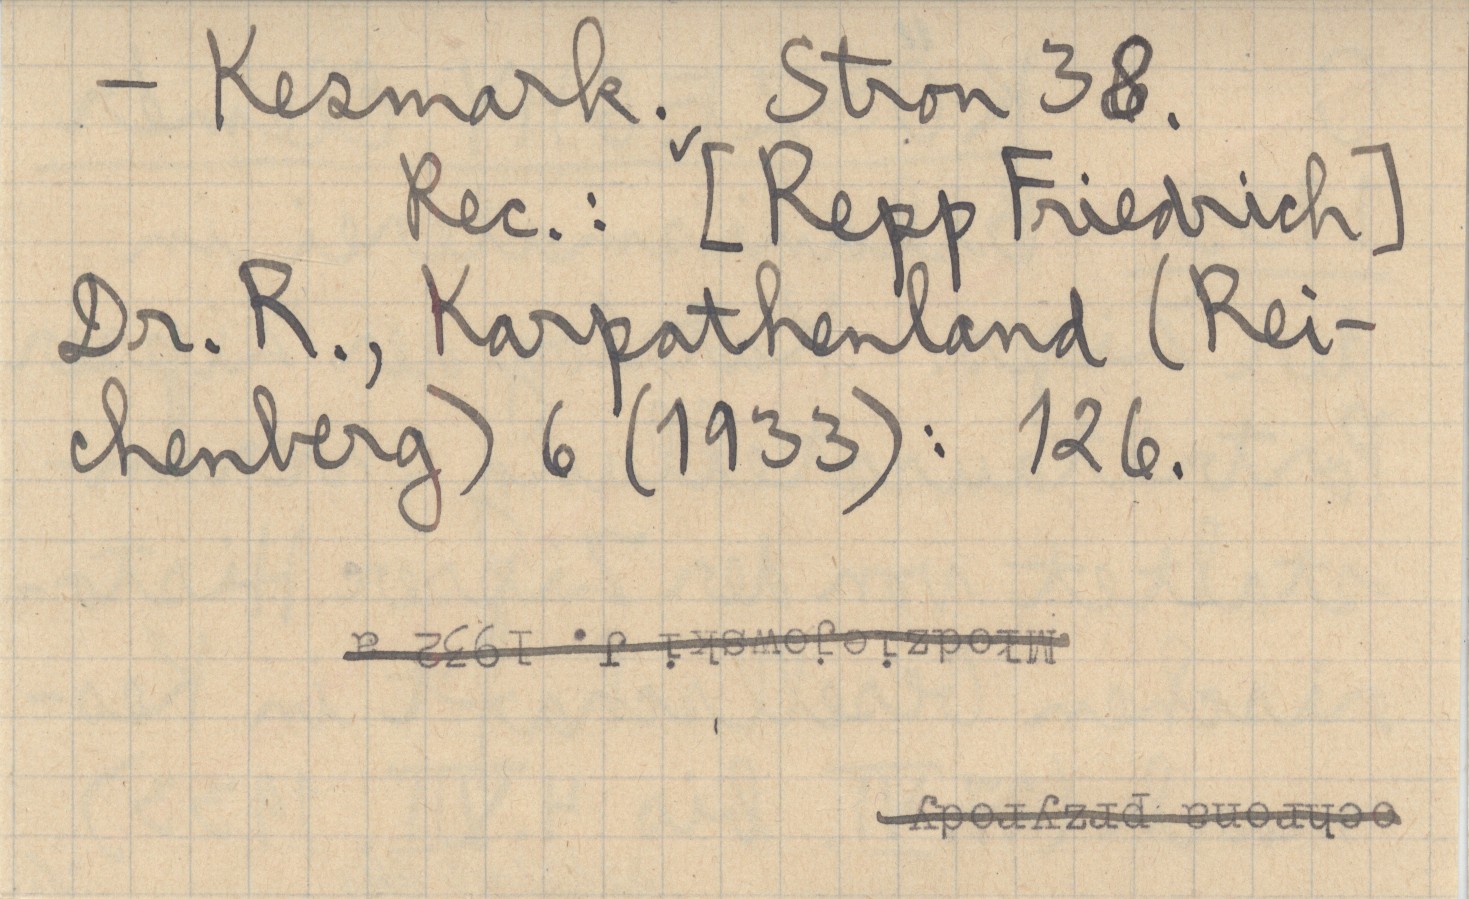 - Kesmark. Stron 38.
Rec.: [Repp Friedrich]
Dr. R., Karpathenland (Rei-
chenberg) 6 (1933): 126.
Młodziejowski J. 1932 a
ochrona przyrody